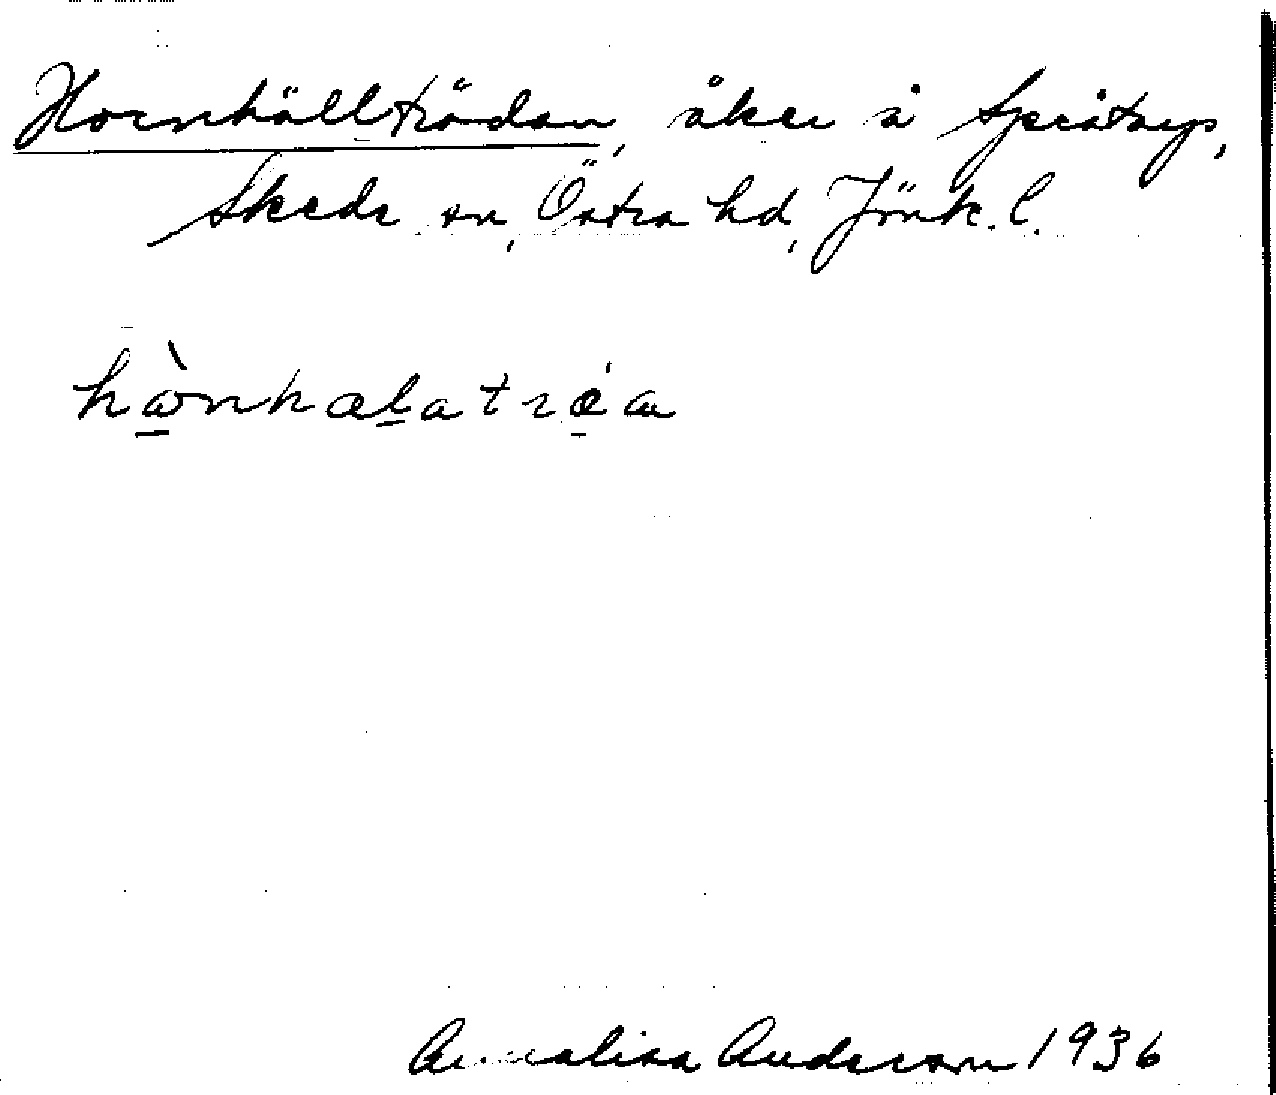 Hornhällträdan, åker å Språtorp,
Skede sn, Östra hd, Jönk. l.
hὼnhælatrǿa
Annalisa Anderson 1936